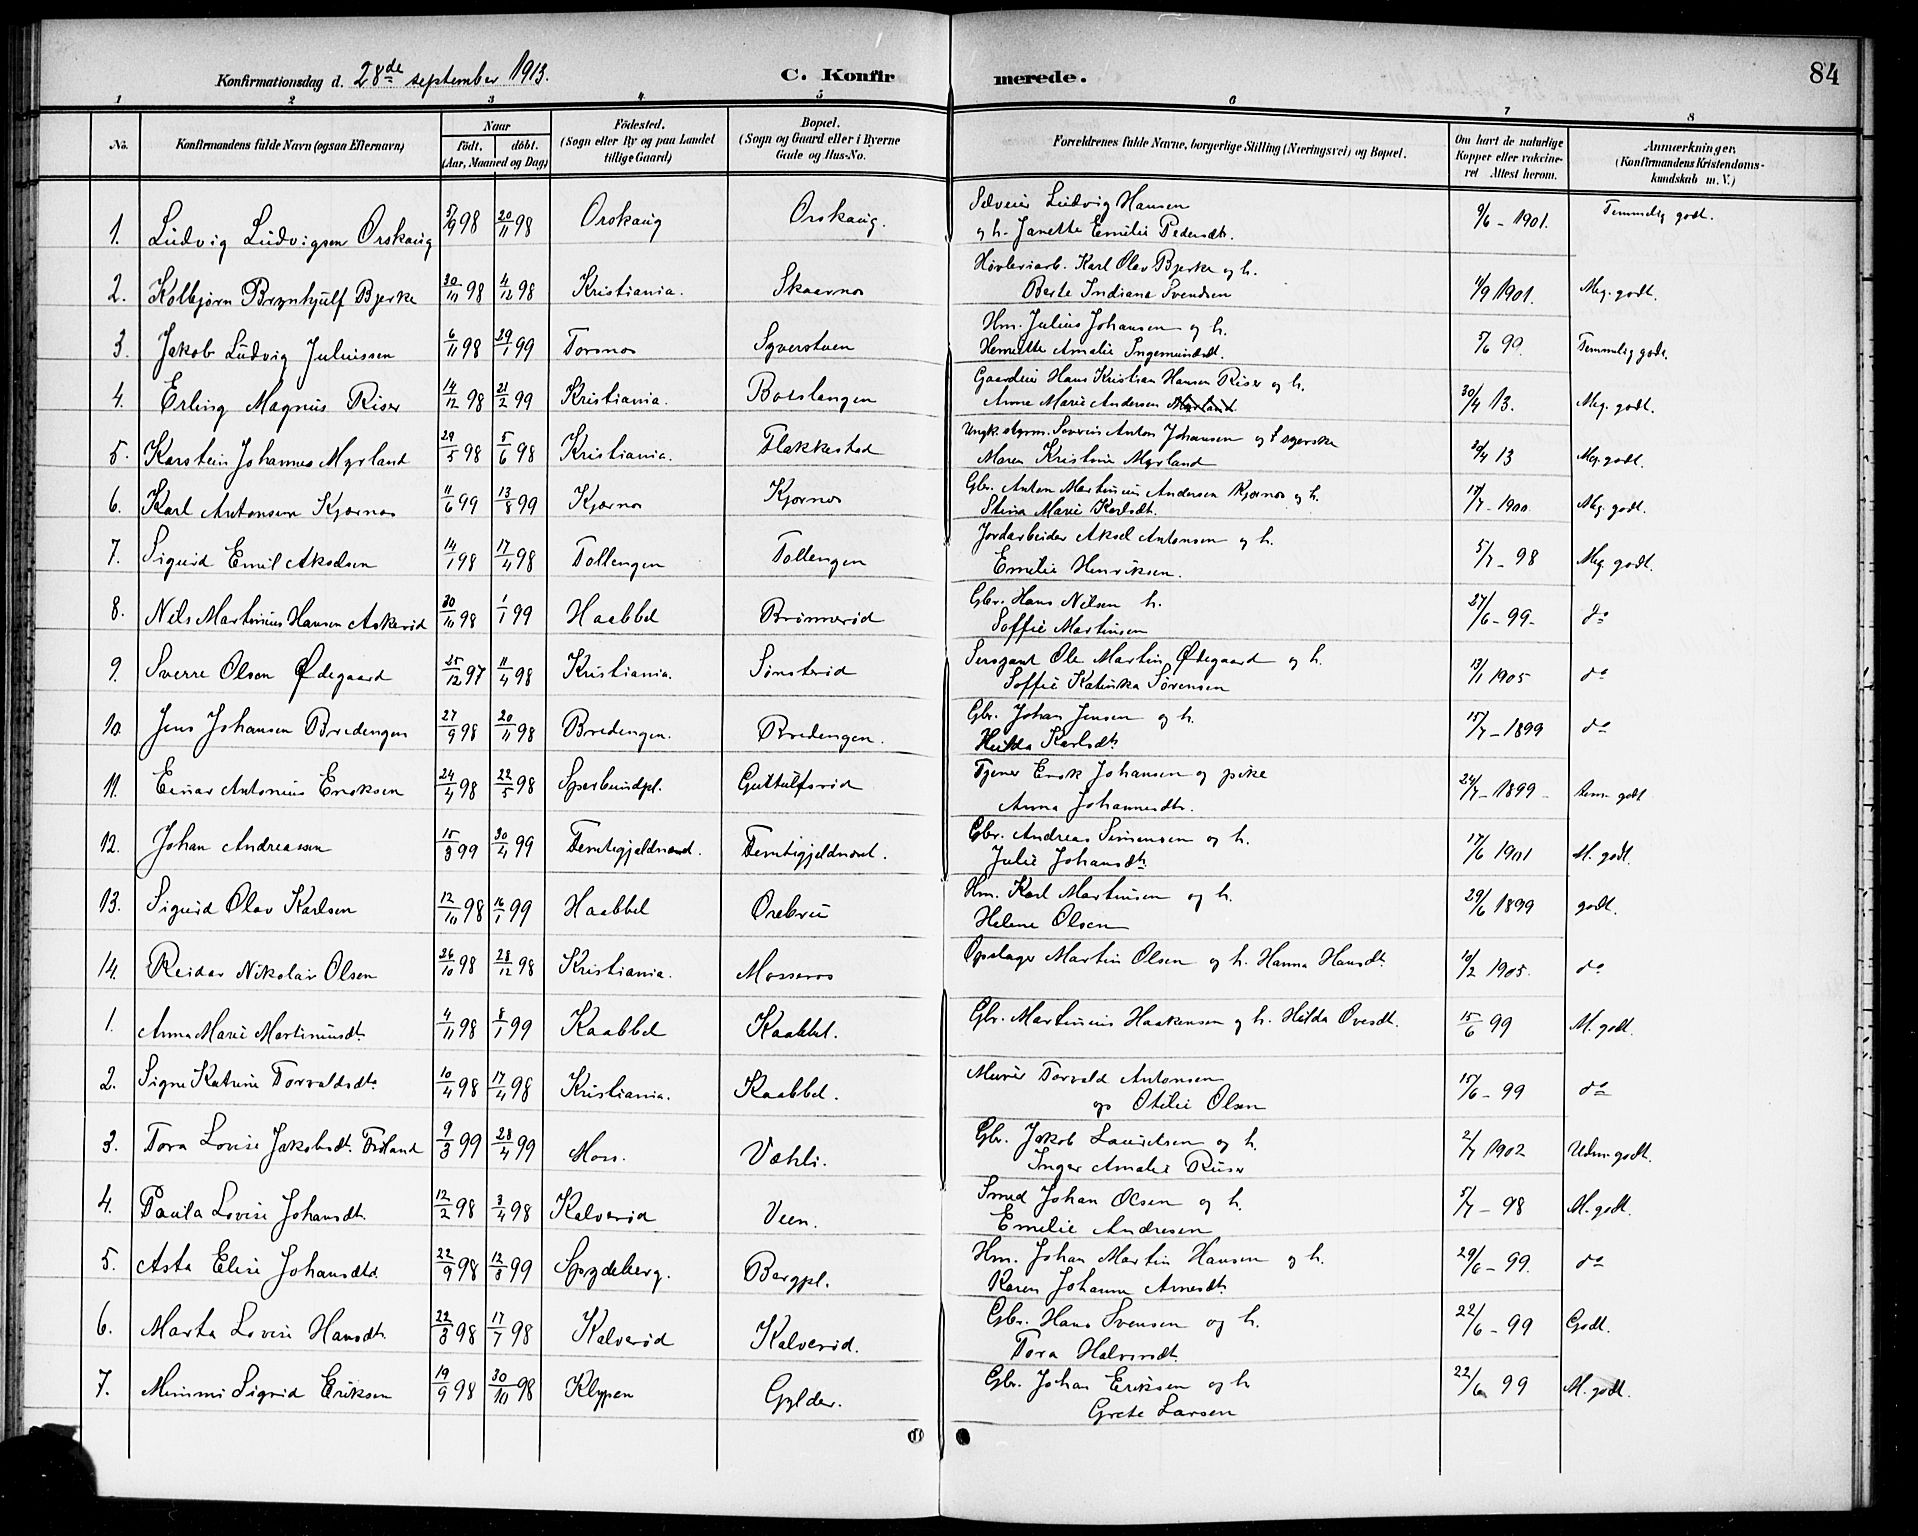 Konfirmationsdag d. 28de september 1913.
C. Konfirmerede.
84
1 2 3 4 5 6 7 8
No.
Konfirmandens fulde Navn (ogsaa Efternavn)
Naar
født. døbt.
(Aar, Maaned og Dag)
Fødested.
(Sogn eller By og paa Landet
tillige Gaard)
Bopæl.
(Sogn og Gaard eller i Byerne
Gade og Hus-No.
Forældrenes fulde Navne, borgerlige Stilling (Næringsvei) og Bopæl.
Om havt de naturlige
Kopper eller vakcine-
ret Attest herom.
Anmærkninger.
(Konfirmandens Kristendoms-
kundskab m. V.)
1. Ludvig Ludvigsen Orskaug 5/9 98 20/11 98 Orskaug Orskaug. Selveier Ludvig Hansen 9/6 - 1901. Temmelig godt.
og h. Janette Emilie Pedersdt.
2. Kolbjørn Brynhjulf Bjerke 30/10 98 4/12 98 Kristiania. Skaarnes Høvleriarb. Karl Olav Bjerke og h. 4/9 1901. Meg. godt.
Berte Indiana Svendsen
3. Jakob Ludvig Juliussen 6/11 98 29/1 99 Torsnes Syverstuen Hm. Julius Johansen og h. 5/6 99. Temmelig godt.
Henriette Amalie Ingemundsdt.
4. Erling Magnus Riser 14/12 98 21/2 99 Kristiania. Botslangen Gaardeier Hans Kristian Hansen Riser og h. 30/4 13. Meg. godt.
Anne Marie Andersen Myrland
5. Karstein Johannes Myrland 29/5 98 5/6 98 Kristiania. Flakkestad Ungk. styrm. Severin Anton Johansen og syerske 29/4 13 Meg. godt.
Maren Kristine Myrland
6. Karl Antonsen Kjærnes 11/6 99 13/8 99 Kjærnes Kjærnes Gbr. Anton Martinius Andersen Kjærnes og h. 17/7 - 1900. Meg. godt.
Stina Marie Karlsdt.
7. Sigurd Emil Akselsen 14/1 98 17/4 98 Tollengen Tollengen Jordarbeider Aksel Antonsen og h. 5/7 - 98 Meg. godt.
Emilie Henriksen.
8. Nils Martinius Hansen Askerød 30/10 98 1/1 99 Haabbel Brønnerød Gbr. Hans Nilsen h. 27/6 - 99 - do
Soffie Martinsen
9. Sverre Olsen Ødegaard 25/12 97 11/4 98 Kristiania. Sønsterød Sersjant Ole Martin Ødegaard og h. 13/1 1905 do
Soffie Katinka Sørensen
10. Jens Johansen Bredengen 27/9 98 20/11 98 Bredengen. Bredengen. Gbr. Johan Jensen og h. 15/7 - 1899 do
Hulda Karlsdt.
11. Einar Antonius Eriksen 24/4 98 22/5 98 Sperbundpl. Guttulfsrød Tjener Erik Johansen og pike 24/7 - 1899 - tem. godt
Anna Johannesdt.
12. Johan Andreassen 15/3 99 30/4 99 Femtigjeldnæst. Femtigjeldnæst. Gbr. Andreas Simensen og h. 17/6 1901 M. godt.
Julie Johansdt.
13. Sigurd Olav Karlsen 12/10 98 16/1 99 Haabbel Orebru Hm. Karl Martinsen og h. 29/6 1899 godt.
Helene Olsen
14. Reidar Nikolai Olsen 26/10 98 28/12 98 Kristiania. Mosseros Opslager Martin Olsen og h. Hanna Hansdt. 10/2 1905. do
1. Anna Marie Martiniusdt. 4/11 98 8/1 99 Kaabbel Kaabbel. Gbr. Martinius Haakensen og h. Hilda Ovesdt. 15/6 99 M. godt.
2. Signe Katrine Torvaldsdt. 10/4 98 17/4 98 Kristiania. Kaabbel. Murer Torvald Antonsen 15/6 - 99 do
og Otilie Olsen
3. Tora Lovise Jakobsdt. Froland 9/3 99 28/4 99 Moss. Væhli. Gbr. Jakob Lauritsen og h. 2/7 1902 Udm. godt.
Inger Amalie Riiser
4. Paula Lovise Johansdt. 12/2 98 3/4 98 Kalverød Veen. Smed Johan Olsen og h. 5/7 - 98 M. godt.
Emelie Andresen
5. Asta Elise Johansdt. 22/9 98 12/3 99 Spydeberg. Bergpl. Hm. Johan Martin Hansen og h. 29/6 - 99. do
Karen Johanne Arnesdt.
6. Marta Lovise Hansdt. 22/3 98 17/7 98 Kalverød Kalverød. Gbr. Hans Svensen og h. 22/6 - 99 Godt.
Tora Halvorsdt.
7. Mimmi Sigrid Eriksen 19/9 98 30/10 98 Klypen Gylder. Gbr. Johan Eriksen og h 22/6 99 M. godt.
Grete Larsen